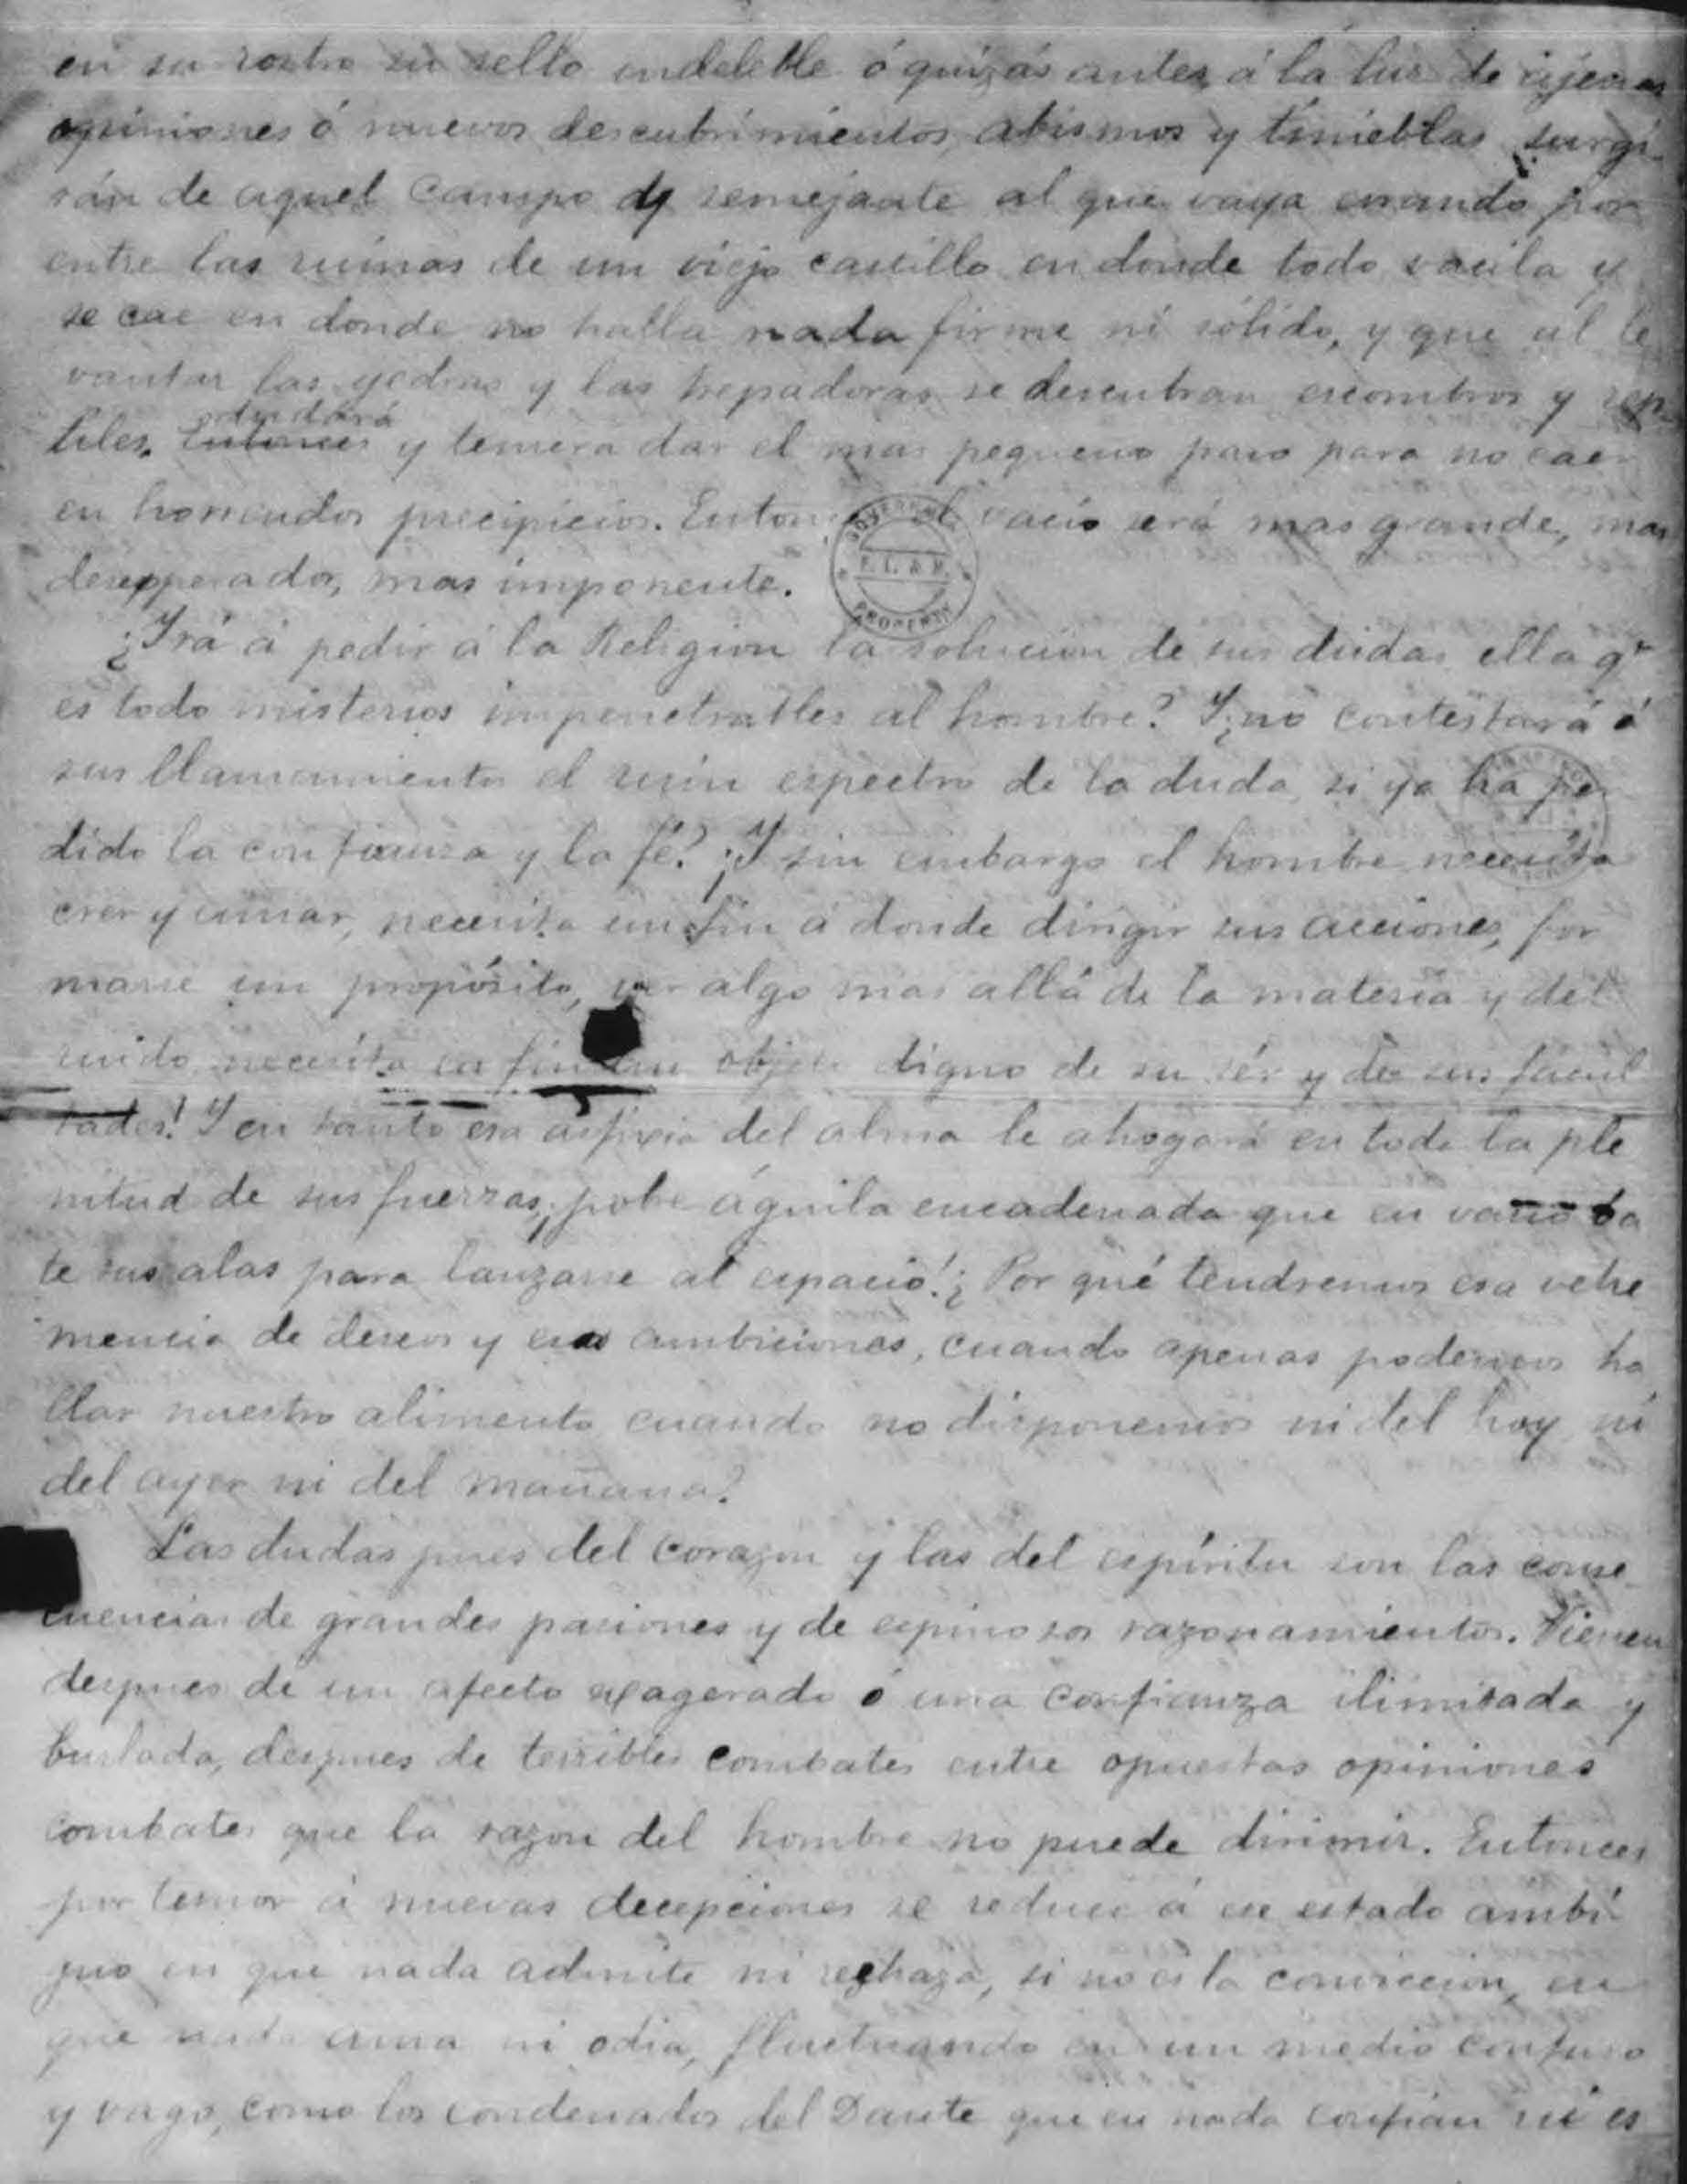 en su rostro su sello indeleble ó quizás antes, á la luz de ajenas
opiniones ó nuevos descubrimientos, abismos y tinieblas surgi-
rán de aquel campo semejante al que vaya errando por
entre las ruinas de un viejo castillo en donde todo vacila y
se cae en donde no halla nada firme ni sólido, y que al le
vantar las yedras y las trepadoras se descubran escombros y rep-
tiles. Entonces dudará y temera dar el mas pequeño paso para no caer
en horrendos precipicios. Entonces el vacio será mas grande, mas
desesperado, mas imponente.
¿Irá á pedir á la Religion la solucion de sus dudas ella qe
es todo misterios impenetrables al hombre? Y ¿no contestará á
sus llamamientos el ruin espectro de la duda, si ya ha per
dido la confianza y la fé? ¡Y sin embargo el hombre necesita
creer y amar, necesita un fin á donde dirigir sus acciones, for
marse un propósito, ver algo mas allá de la materia y del
ruido, necesita en fin un objeto digno de su sér y de sus facul
tades! Y en tanto esa asfixia del alma le ahogará en toda la ple
nitud de sus fuerzas, ¡pobre águila encadenada que en vano ba
te sus alas para lanzarse al espacio! ¿Por qué tendremos esa vehe
mencia de deseos y esas ambiciones, cuando apenas podemos ha
llar nuestro alimento cuando no disponemos ni del hoy ni
del ayer ni del mañana?
Las dudas pues del corazon y las del espíritu son las conse-
cuencias de grandes pasiones y de espinosos razonamientos. Vienen
despues de un afecto exagerado ó una confianza ilimitada y
burlada, despues de terribles combates entre opuestas opiniones
combates que la razon del hombre no puede dirimir. Entonces
por temor á nuevas decepciones se reduce á ese estado ambí-
guo en que nada admite ni rechaza, si no es la conviccion, en
que nada ama ni odia, fluctuando en un medio confuso
y vago, como los condenados del Dante que en nada confian ni es
GOVERNMENT
F. L. & M.
PROPERTY